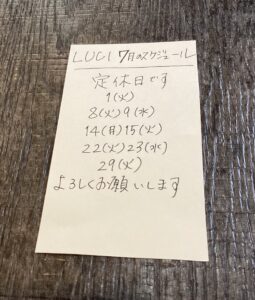 LUCI 7月のスケジュール
定休日です
1(火)
8(火)9(水)
14(月)15(火)
22(火)23(水)
29(火)
よろしくお願いします